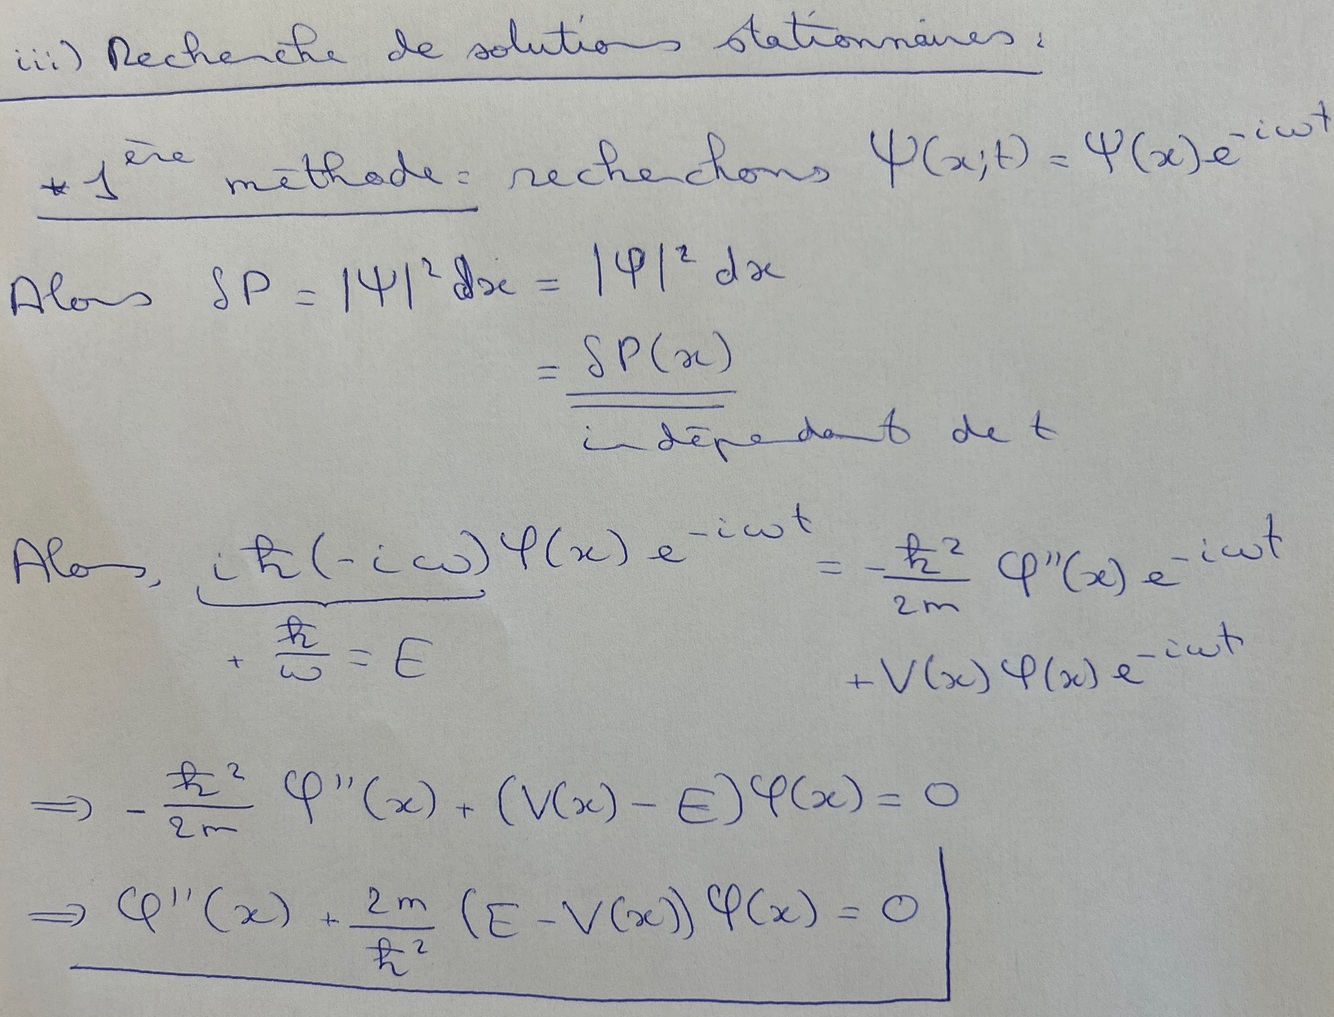 iii) Recherche de solutions stationnaires :
* 1ère méthode : recherchons Ψ(x;t) = Ψ(x)e^{-iωt}
Alors δP = |Ψ|² dx = |φ|² dx
= δP(x)
indépendant de t
Alors, iħ(-iω)φ(x) e^{-iωt} = -ħ²/2m φ''(x) e^{-iωt}
+ ħ/ω = E
+ V(x) φ(x) e^{-iωt}
⇒ -ħ²/2m φ''(x) + (V(x) - E)φ(x) = 0
⇒ φ''(x) + 2m/ħ² (E - V(x)) φ(x) = 0